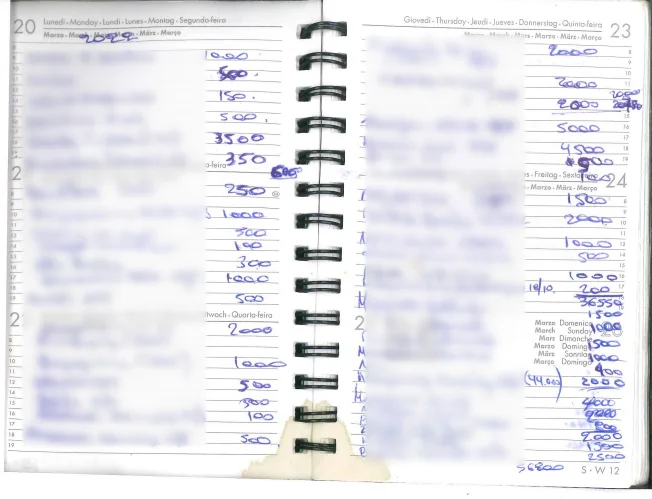 20 Lunedì - Monday - Lundi - Lunes - Montag - Segunda-feira
Marzo - March - Mars - Marzo - März - Março
2022
1000
500.
150.
500.
3500
350
a-feira
2
600
250
1000
500
100
300
1000
500
2 twoch - Quarta-feira
2000
1000
500
300
100
500.
Giovedì - Thursday - Jeudi - Jueves - Donnerstag - Quinta-feira 23
Marzo - March - Mars - Marzo - März - Março
2000
2000
2000
5000
4500
s - Freitag - Sexta
24
- Marzo - März - Março
1500
2000
1000
500
1000
18/10. 200
36550
1500
Marzo Domenica 1000
March Sunday
Mars Dimanche 1500
Marzo Domingo
März Sonntag 1000
Março Domingo
400
(44.000) 2000
4000
800
2000
1500
2500
56800
S - W 12